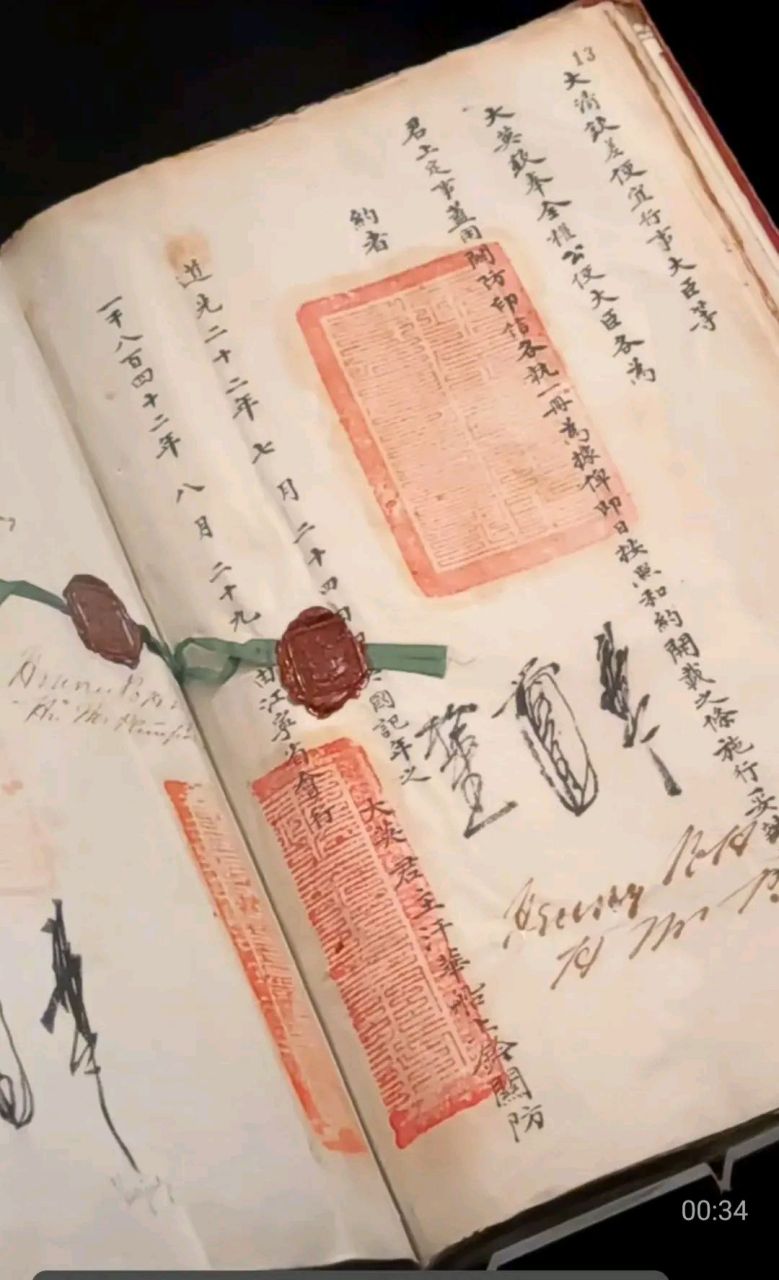 13
大清欽差便宜行事大臣等
大英欽奉全權公使大臣各為
君上定事蓋用關防印信各執一冊為據俾即日按照和約開載之條施行妥
要要約者
道光二十二年七月二十四國記年之
一千八百四十二年八月二十九江寧省會行
大英君主汗華船上鈐關防
Henry Pott
H M P
00:34